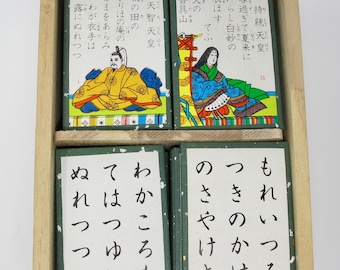 天智天皇
の田の
りほの庵の
まをあらみ
わが衣手は
露にぬれつつ
持統天皇
過ぎて夏来に
らし白妙の
具山
わかころ
てはつゆ
ぬれつつ
もれいつ
つきのか
のさやけ